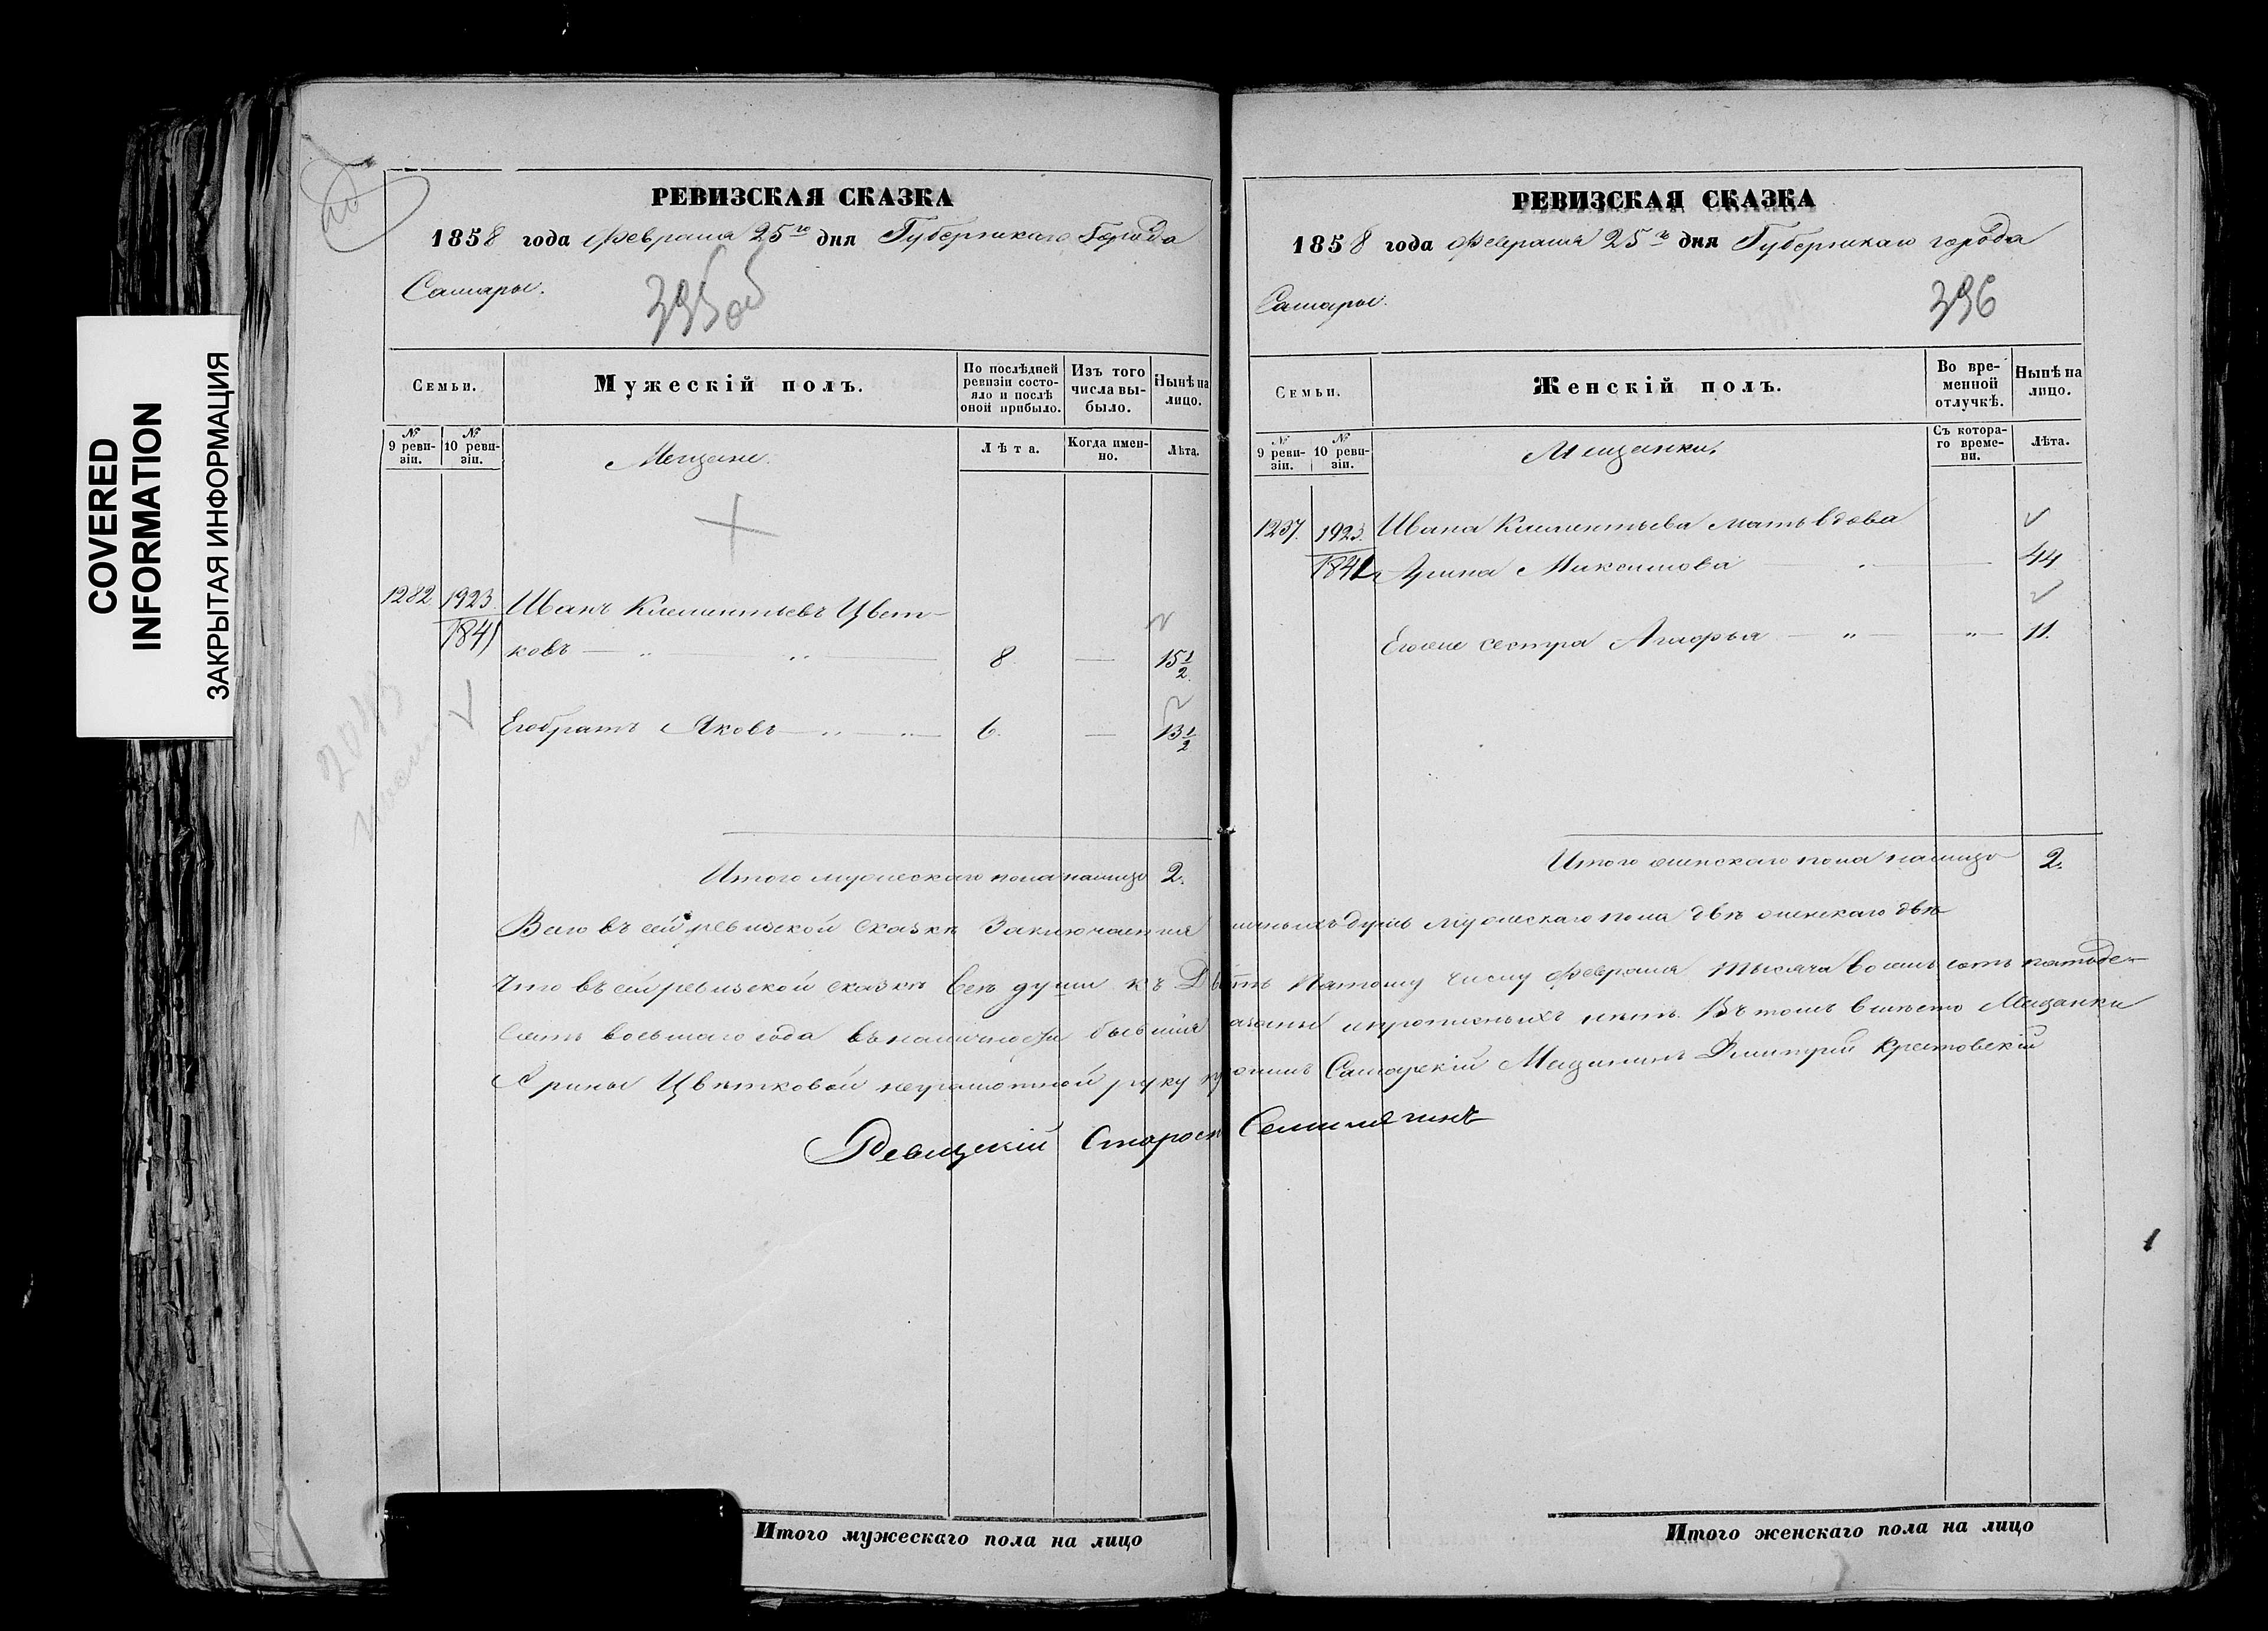 COVERED
INFORMATION
ЗАКРЫТАЯ ИНФОРМАЦИЯ
РЕВИЗСКАЯ СКАЗКА
1858 года Февраля 25го дня Губернскаго Города
Самары.
395об
Семьи.
Мужескій полъ.
По послѣдней ревизіи состояло и послѣ оной прибыло.
Изъ того числа выбыло.
Нынѣ на лицо.
№ 9 ревизіи.
№ 10 ревизіи.
Мещане.
Лѣта.
Когда именно.
Лѣта.
1282 1923 Иванъ Климентьевъ Цвет-
1841 ковъ — „ — „ — 8 — 15 1/2
Егобратъ Яковъ — „ — „ — 6. — 13 1/2
2045
Итого мужескаго пола налицо 2.
РЕВИЗСКАЯ СКАЗКА
1858 года Февраля 25го дня Губернскаго города
Самары.
396
Семьи.
Женскій полъ.
Во временной отлучкѣ.
Нынѣ на лицо.
№ 9 ревизіи.
№ 10 ревизіи.
Мещанки.
Съ котораго времени.
Лѣта.
1237. 1923. Ивана Климентьева мать вдова
1841 Арина Максимова „ — 44
Егоже сестра Агафья — „ — „ — 11.
Итого женскаго пола налицо 2.
Всего въ сей ревизской сказкѣ Заключается личныхъ душъ мужескаго пола двѣ женскаго двѣ
Что въ сей ревизской сказкѣ все души къ Двадцать Пятому числу Февраля тысяча восемь сотъ пятьде-
сятъ восьмаго года въ наличности бывшия показаны и прописныхъ нѣтъ. Въ томъ вместо Мещанки
Арины Цвѣтковой неграмотной руку приложилъ Самарскій Мещанинъ Дмитрий Крестовскій
Ревизскій Староста
Итого мужескаго пола на лицо
Итого женскаго пола на лицо